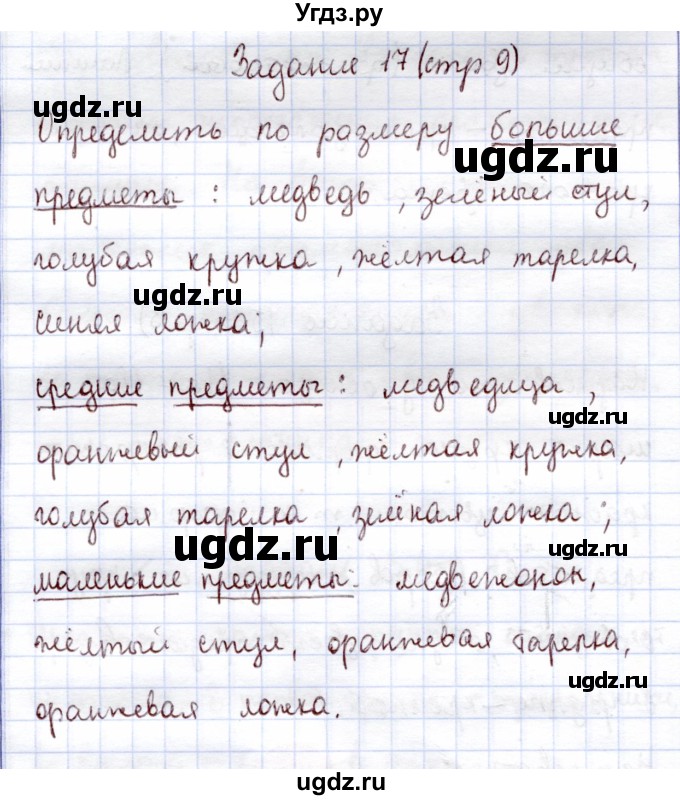 Угдз.ру
Задание 17 (стр 9)
ugdz.ru
Определить по размеру большие
ugdz.ru
предметы : медведь, зелёный стул,
голубая кружка, жёлтая тарелка,
ugdz.ru
синяя ложка;
средние предметы: медведица,
ugdz.ru
оранжевый стул, жёлтая кружка,
голубая тарелка, зелёная ложка;
ugdz.ru
ugdz.ru
маленькие предметы: медвежонок,
жёлтый стул, оранжевая тарелка,
ugdz.ru
оранжевая ложка.
ugdz.ru